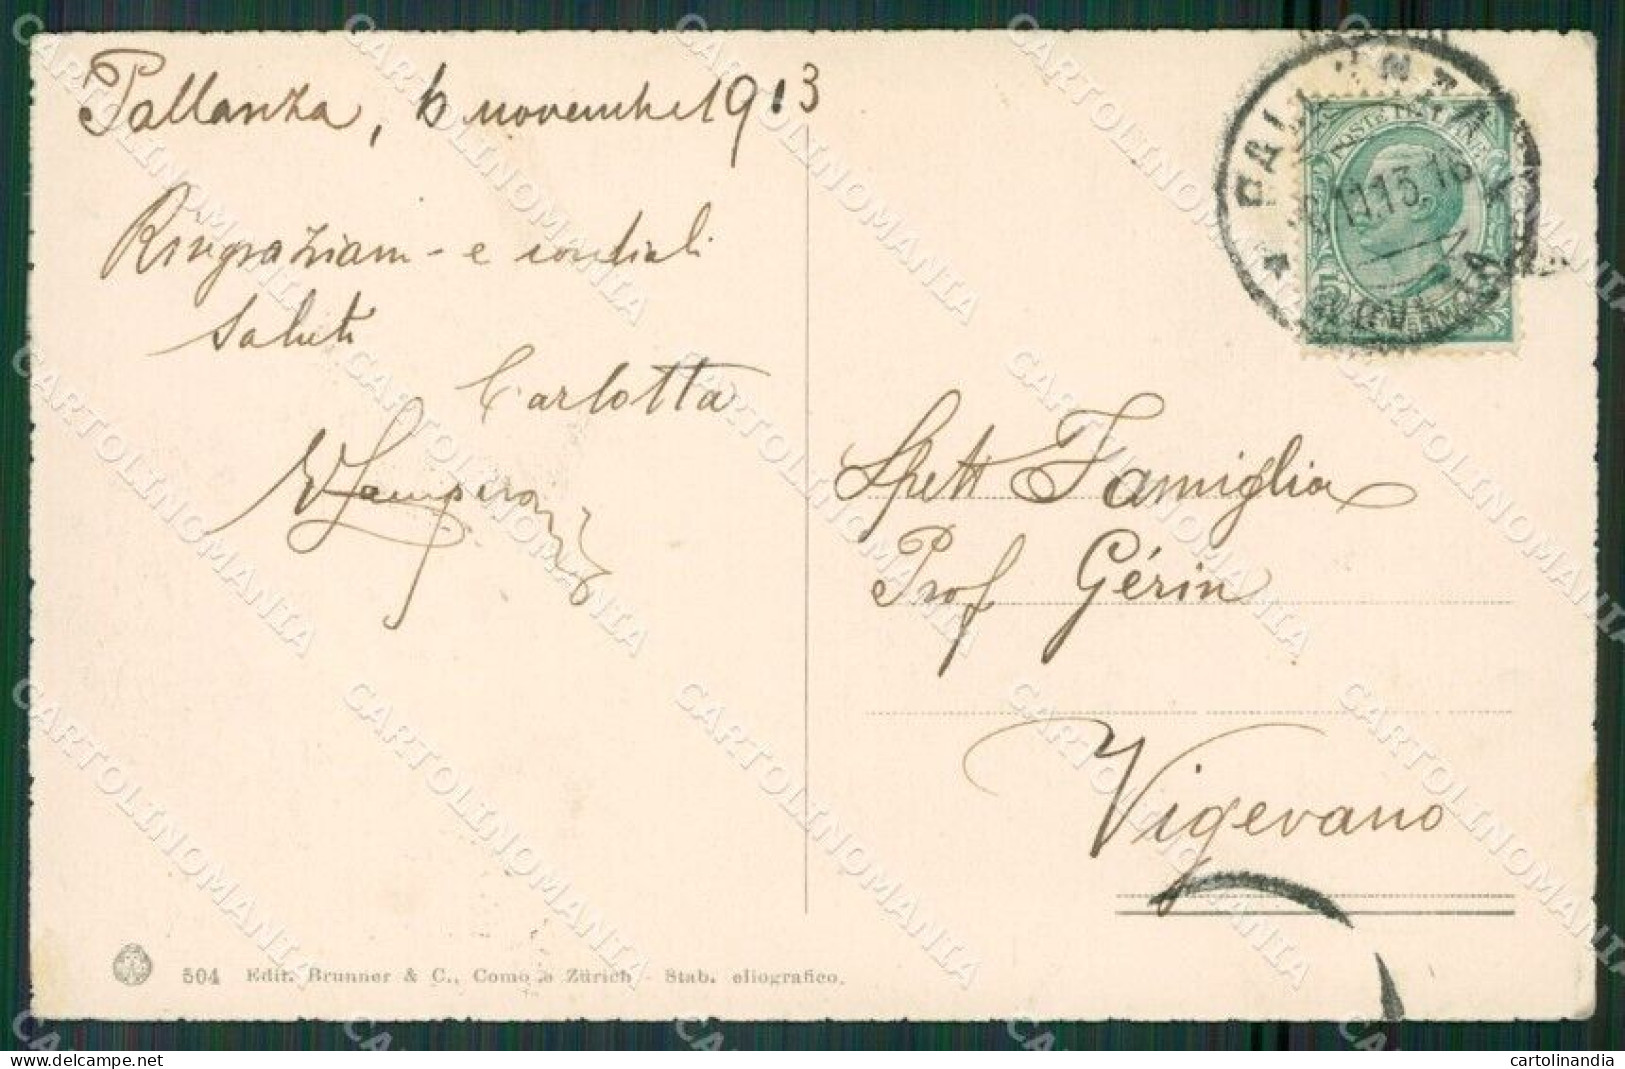 Pallanza, 6 novembre 1913
Ringraziam - e cordiali
saluti
Carlotta
Spett Famiglia
Prof Gérin
Vigevano
PALLANZA
POSTE ITALIANE
11.13.16
504 Edit. Brunner & C., Como e Zürich - Stab. eliografico.
CARTOLINOMANIA
cartolinandia